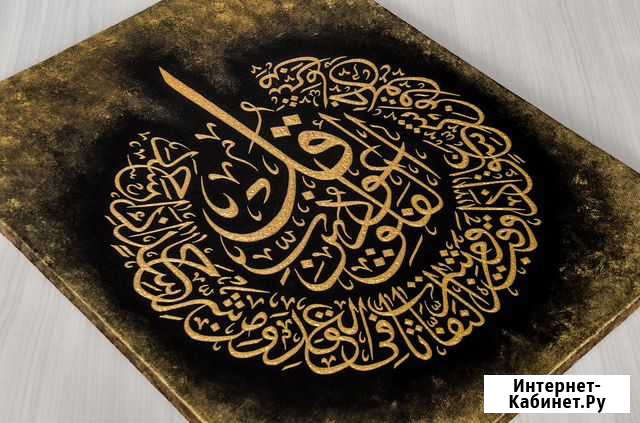 قل أعوذ برب الفلق
إذا وقب ومن شر النفاثات في العقد ومن شر حاسد إذا حسد
Интернет-
Кабинет.Ру